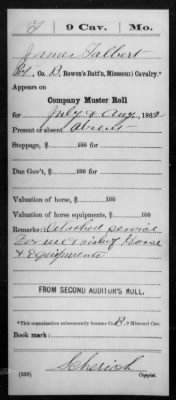 T | 9 Cav. | Mo.
James Talbert
Pvt, Co. B, Bowen's Batt'n, Missouri Cavalry.*
Appears on
Company Muster Roll
for July & Aug, 1862
Present or absent Absent
Stoppage, $ 100 for
Due Gov't, $ 100 for
Valuation of horse, $ 100
Valuation of horse equipments, $ 100
Remarks: Detached service
For use & risk of Horse
& Equipments
FROM SECOND AUDITOR'S ROLL.
*This organization subsequently became Co. B, 9 Missouri Cav.
Book mark:
(359) Copyist.